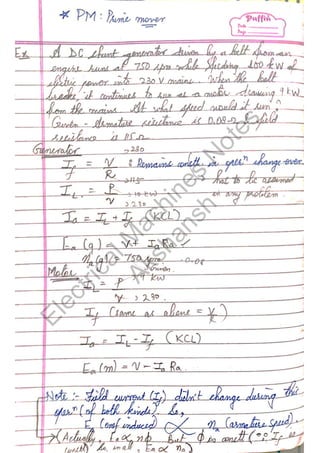 * PM: Prime mover
Puffin
Date
Page
Ex. A DC shunt generator driven by a belt from an
engine runs at 750 rpm while feeding 100 kW of
electric power into 230 V mains. When the belt
breaks it continues to run as a motor drawing 9 kW
from the mains. At what speed would it run?
Given - Armature resistance is 0.08 Ω & field
resistance is 115 Ω
Generator
→230
If = V/R : Remains constt. in opern change over.
→115
: has to be assumed
in any problem.
IL = P/V → 100 kW
→ 230
Ia = IL + If (KCL)
Ea (g) = V + Ia Ra
→0.08
na(g) = 750 rpm
Given
Motor
IL = P/V 9 kW
→ 230.
If (same as above = V/R)
Ia = IL - If (KCL)
Ea (m) = V - Ia Ra.
Note :- Field current (If) didn't change during this
opern (of both kinds). So,
Ea (emf induced) ∝ na (armature speed).
* (Actually, Ea ∝ nφ But φ is constt (∵ If is
constt) so small, Ea ∝ na)
Electrical Machines Notes
Akshansh